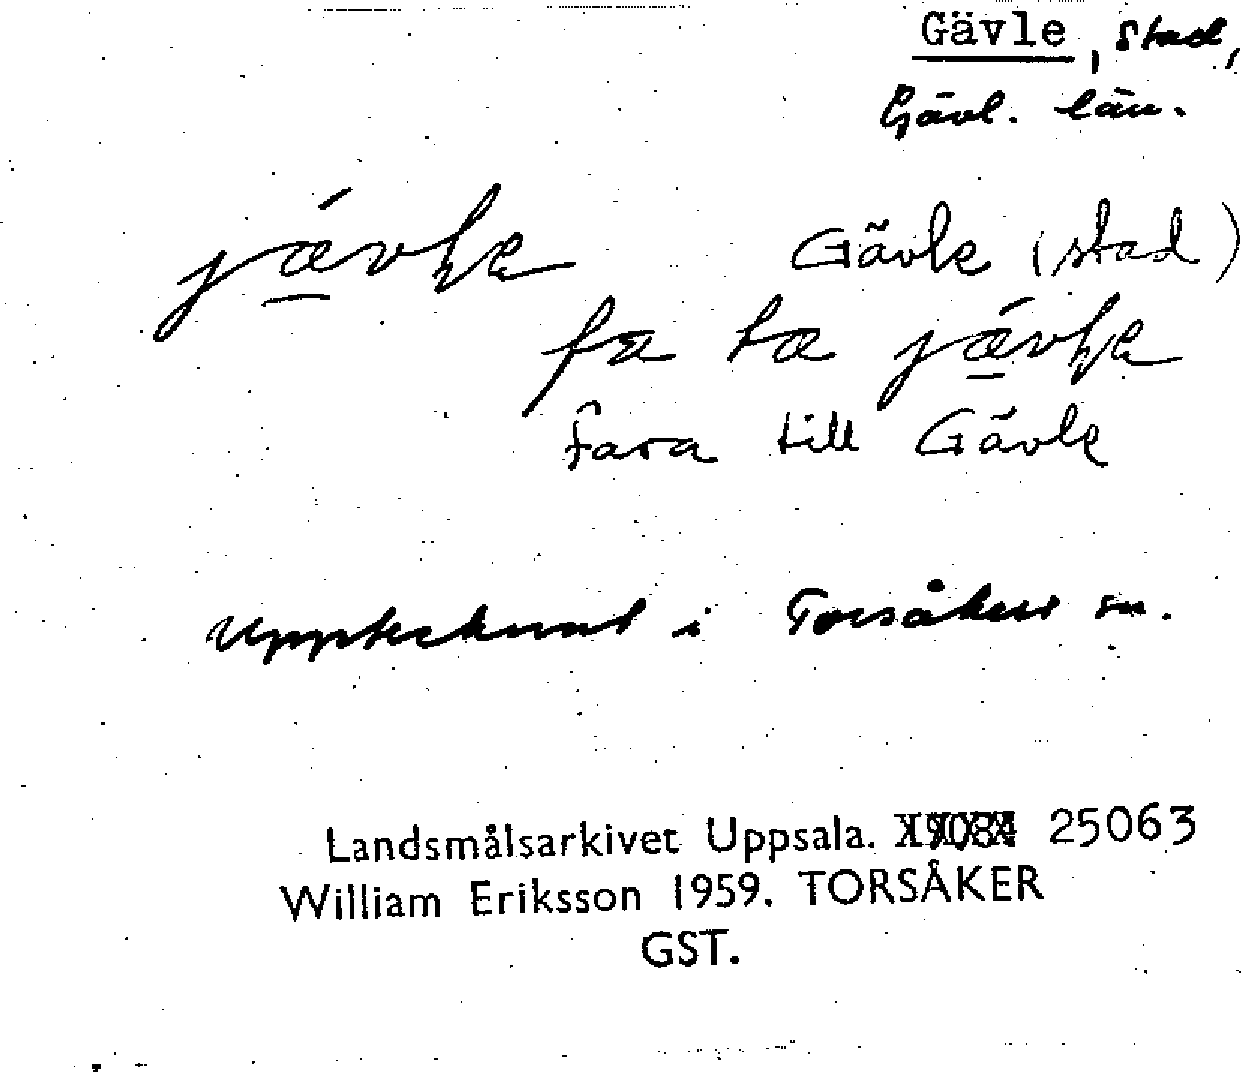 Gävle, stad,
Gävl. län.
jǽvle Gävle (stad)
fa ta jǽvle
fara till Gävle
Upptecknat i Torsåkers sn.
Landsmålsarkivet Uppsala. 25063
William Eriksson 1959. TORSÅKER
GST.